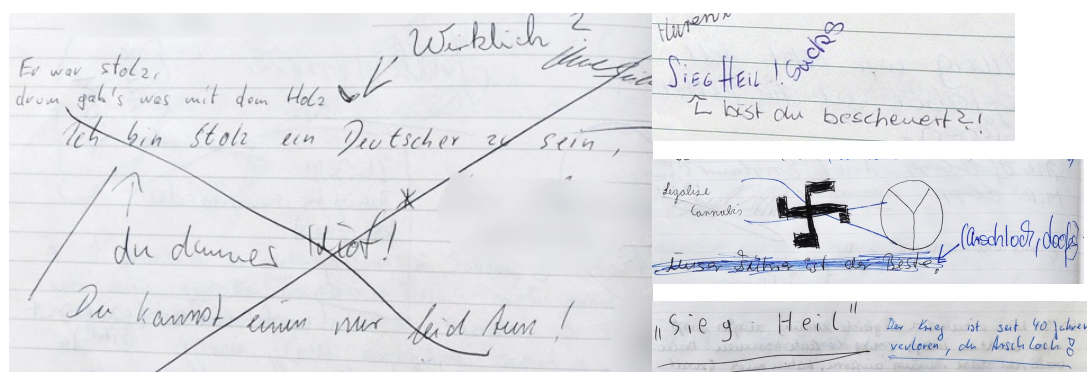 Wirklich?
Er war stolz,
drum gab's was mit dem Holz
Ich bin Stolz ein Deutscher zu sein,
du dummes Idiot!
Du kannst einen nur leid tun!
Huren!
SIEG HEIL! sucks
bist du bescheuert?!
Legalize
Cannabis
(Arschloch, doofes)
Unser Führer ist der Beste!
"Sieg Heil"
Der Krieg ist seit 40 Jahren
verloren, du Arschloch!